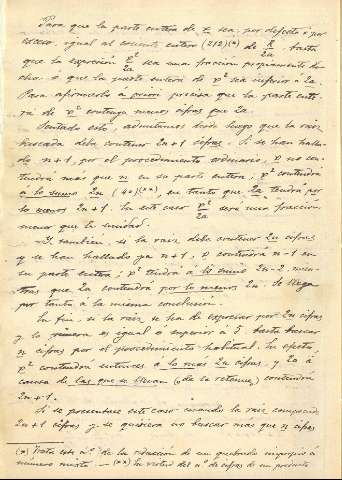 Para que la parte entera de x sea, por defecto ó por
exceso, igual al cociente entero (212)(*) de R/2a, basta
que la expresión v²/2a sea una fracción propiamente di-
cha ó que la parte entera de v² sea inferior á 2a
Para afirmarlo á priori precisa que la parte ente-
ra de v² contenga menos cifras que 2a.
Sentado esto, admitamos desde luego que la raíz
buscada deba contener 2n+1 cifras. Si se han halla-
do n+1, por el procedimiento ordinario, v no con-
tendrá más que n en su parte entera; v² contendrá
á lo sumo 2n (40)(**), en tanto que 2a tendrá por
lo menos 2n+1. En este caso v²/2a será una fracción
menor que la unidad.
Y tambien, si la raíz debe contener 2n cifras
y se han hallado ya n+1, v contendrá n-1 en
su parte entera; v² tendrá á lo sumo 2n-2 mien-
tras que 2a contendrá por lo menos 2n. Se llega
por tanto á la misma conclusión.
En fin, si la raíz se ha de expresar por 2n cifras
y la primera es igual ó superior á 5 basta buscar
n cifras por el procedimiento habitual. En efecto
v² contendrá entonces á lo más 2n cifras, y 2a á
causa de las que se llevan (ó de la retenue) contendrá
2n+1.
Si se presentase este caso cuando la raíz comprende
2n+1 cifras y se quisiera no buscar mas que n cifras
(*) Trata este nº de la reducción de un quebrado impropio á
número mixto. — (**) La virtud del nº de cifras de un producto